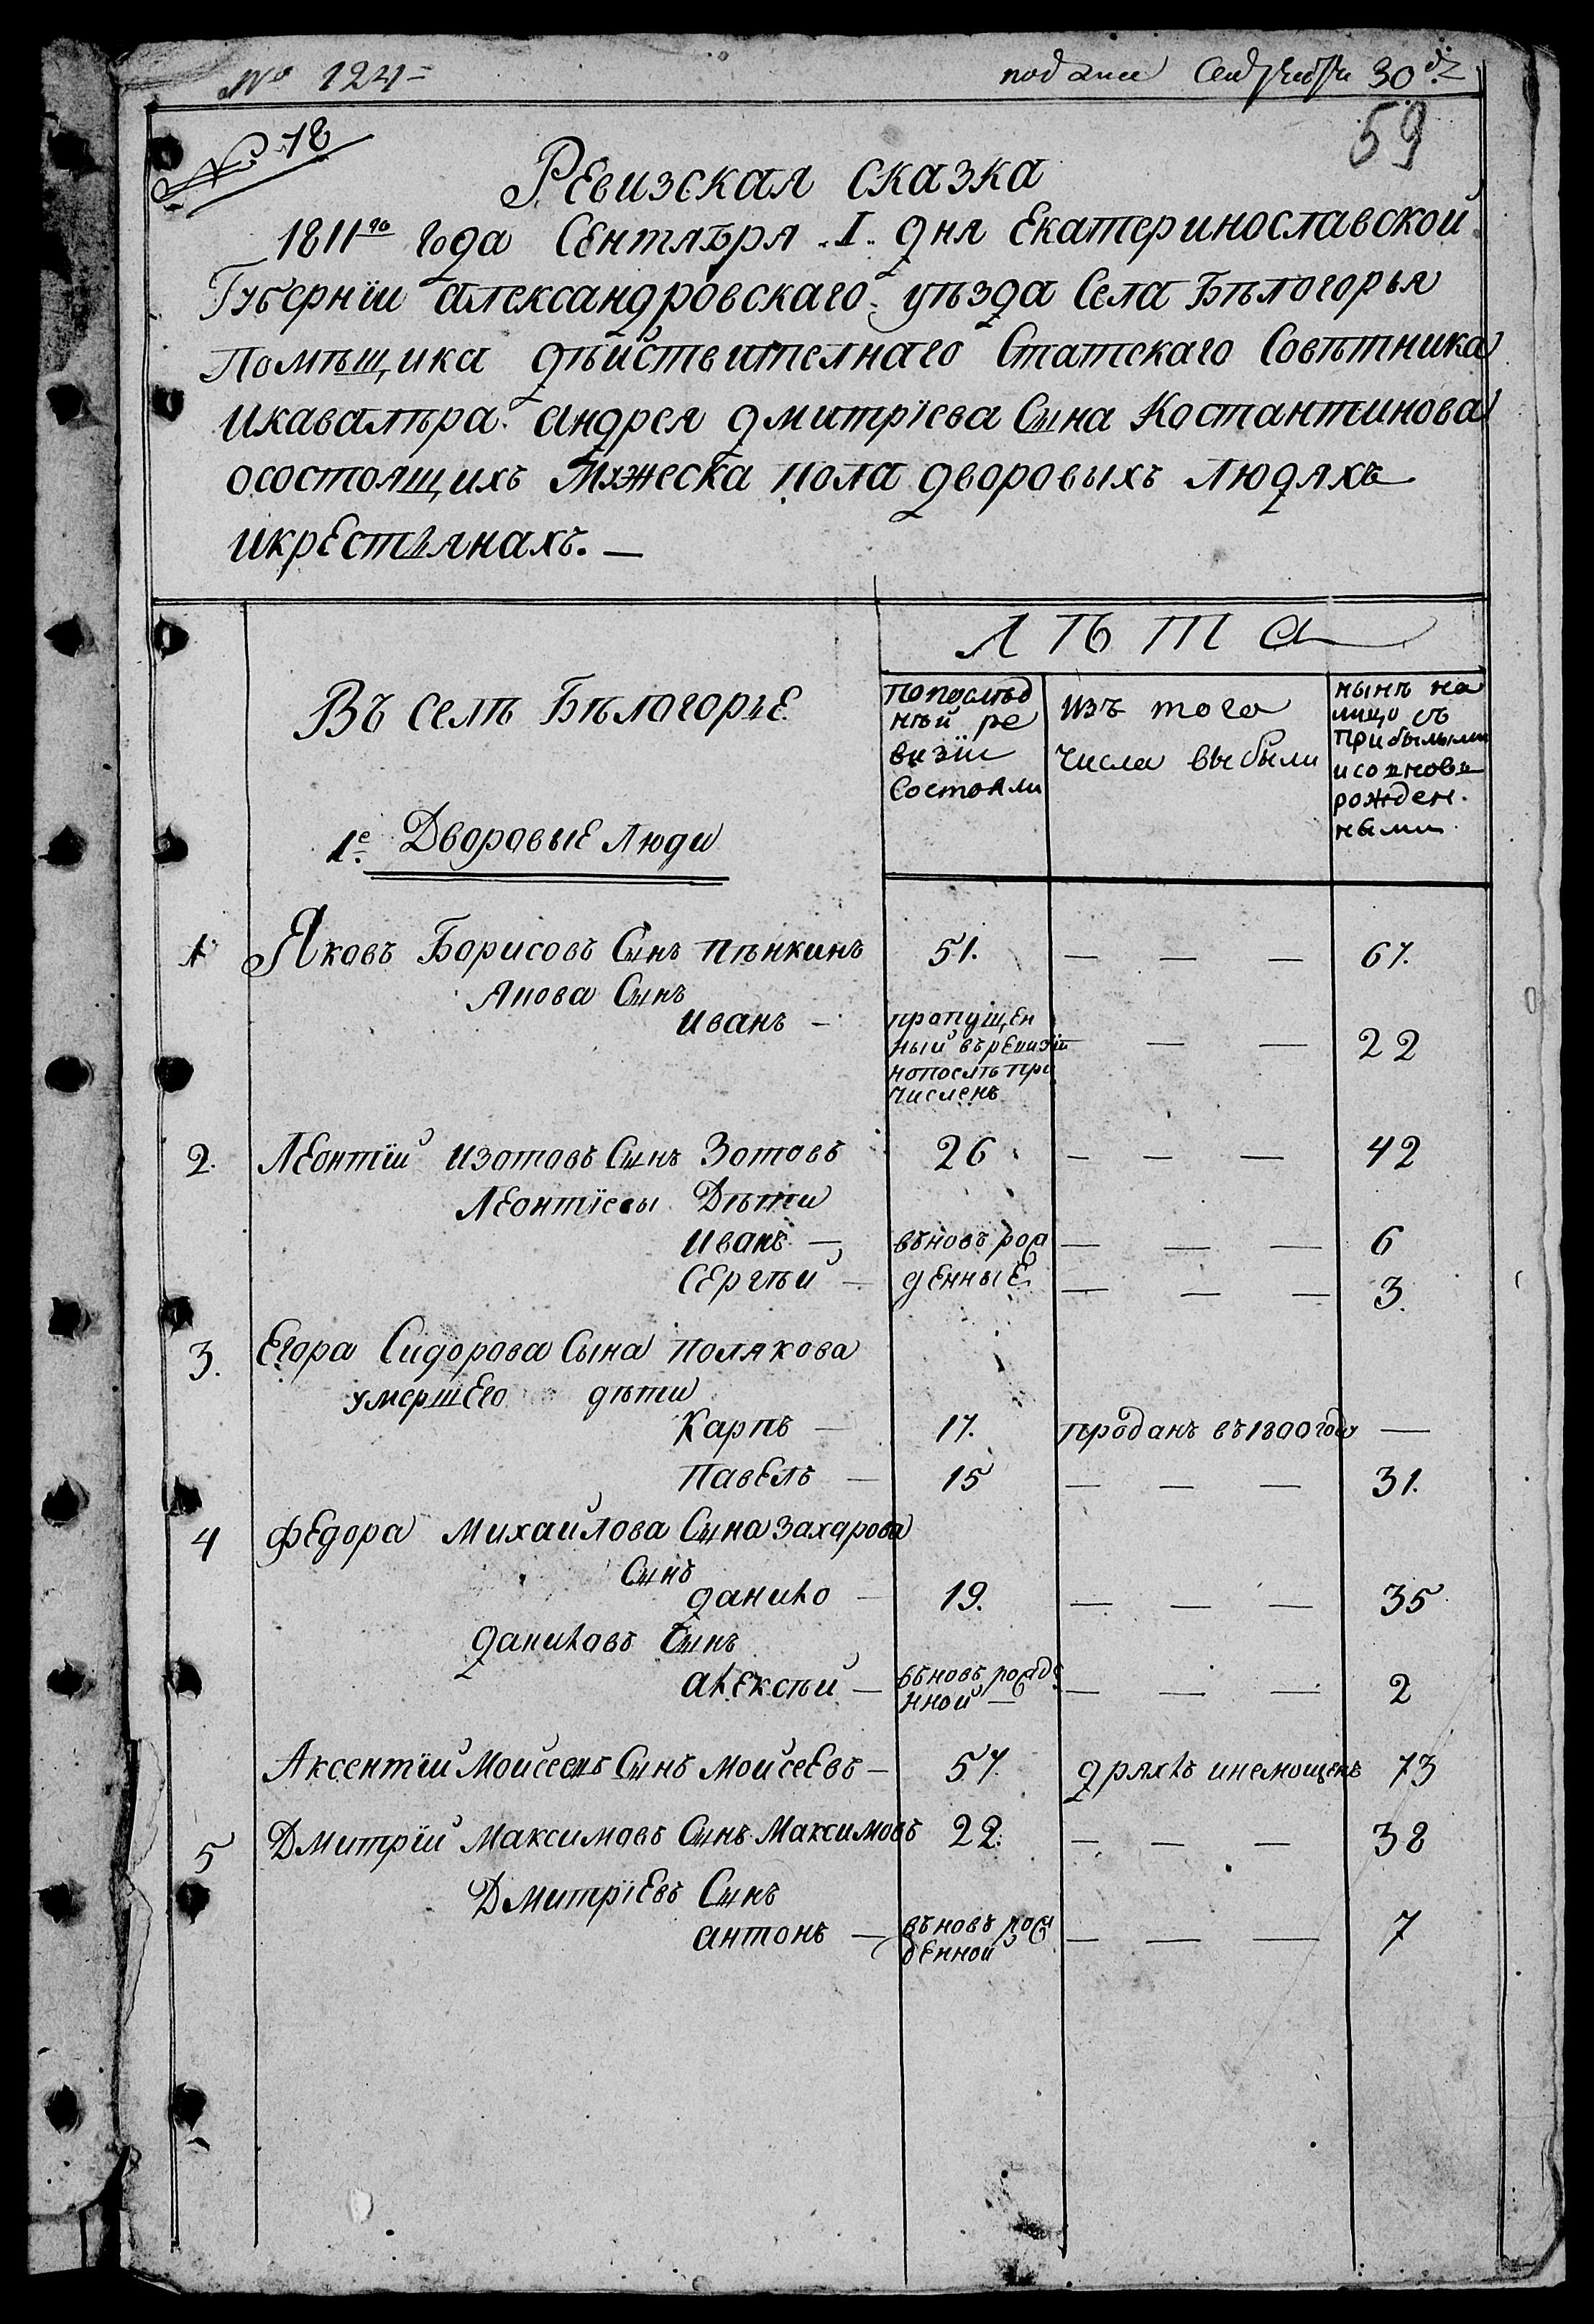 № 124
подана Сентября 30 д.
№ 18
59
Ревизская сказка
1811го года Сентября 1. дня Екатеринославской
Губернїи александровскаго уѣзда Села Бѣлогорья
Помѣщика дѣйствителнаго Статскаго Совѣтника
икавалѣра андрея дмитрїева Сына Костантинова
осостоящихъ Мужеска пола дворовыхъ людяхъ
икрестьянахъ.
Лѣта
Въ селѣ Бѣлогорье
попослѣд
нѣй ре
визїи
Состояли
изъ того
числа выбыли
нынѣ на
лицо съ
прибылыми
исовновь
рожден.
ными
1е. Дворовые Люди
1 Яковъ Борисовъ Сынъ пѣнкинъ 51. — — — 67.
Яковa Сынъ
иванъ — пропущен
ный въревизїи
нопослѣ при
численъ — — 22
2. Леонтїй изотовъ Сынъ Зотовъ 26 — — — 42
Леонтїевы Дѣти
иванъ — вновь рож — — — 6
Сергѣй — денные — — — 3.
3. Егора Сидорова Сына полякова
умершего дѣти
Карпъ — 17. проданъ въ1800году —
павелъ — 15 — — — 31.
4 федора михайлова Сына захарова
Сынъ
данило — 19. — — — 35
даниловъ Сынъ
алексѣй — вновь рожде
нной — — — — 2
Аксентїй Моисеевъ Сынъ моисеевъ — 57. дряхлъ инемощенъ 73
5 Дмитрїй Максимовъ Сынъ Максимовъ 22. — — — 38
Дмитрїевъ Сынъ
антонъ — вновь рож
денной — — — 7